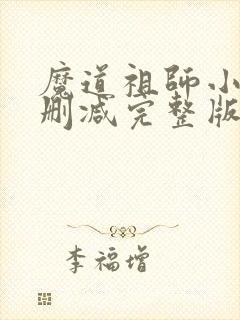 魔道祖師小
刪減完整版
李福增